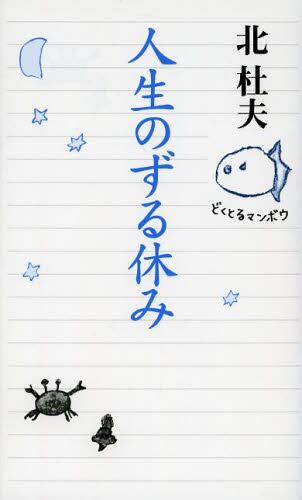 北杜夫
どくとるマンボウ
人生のずる休み